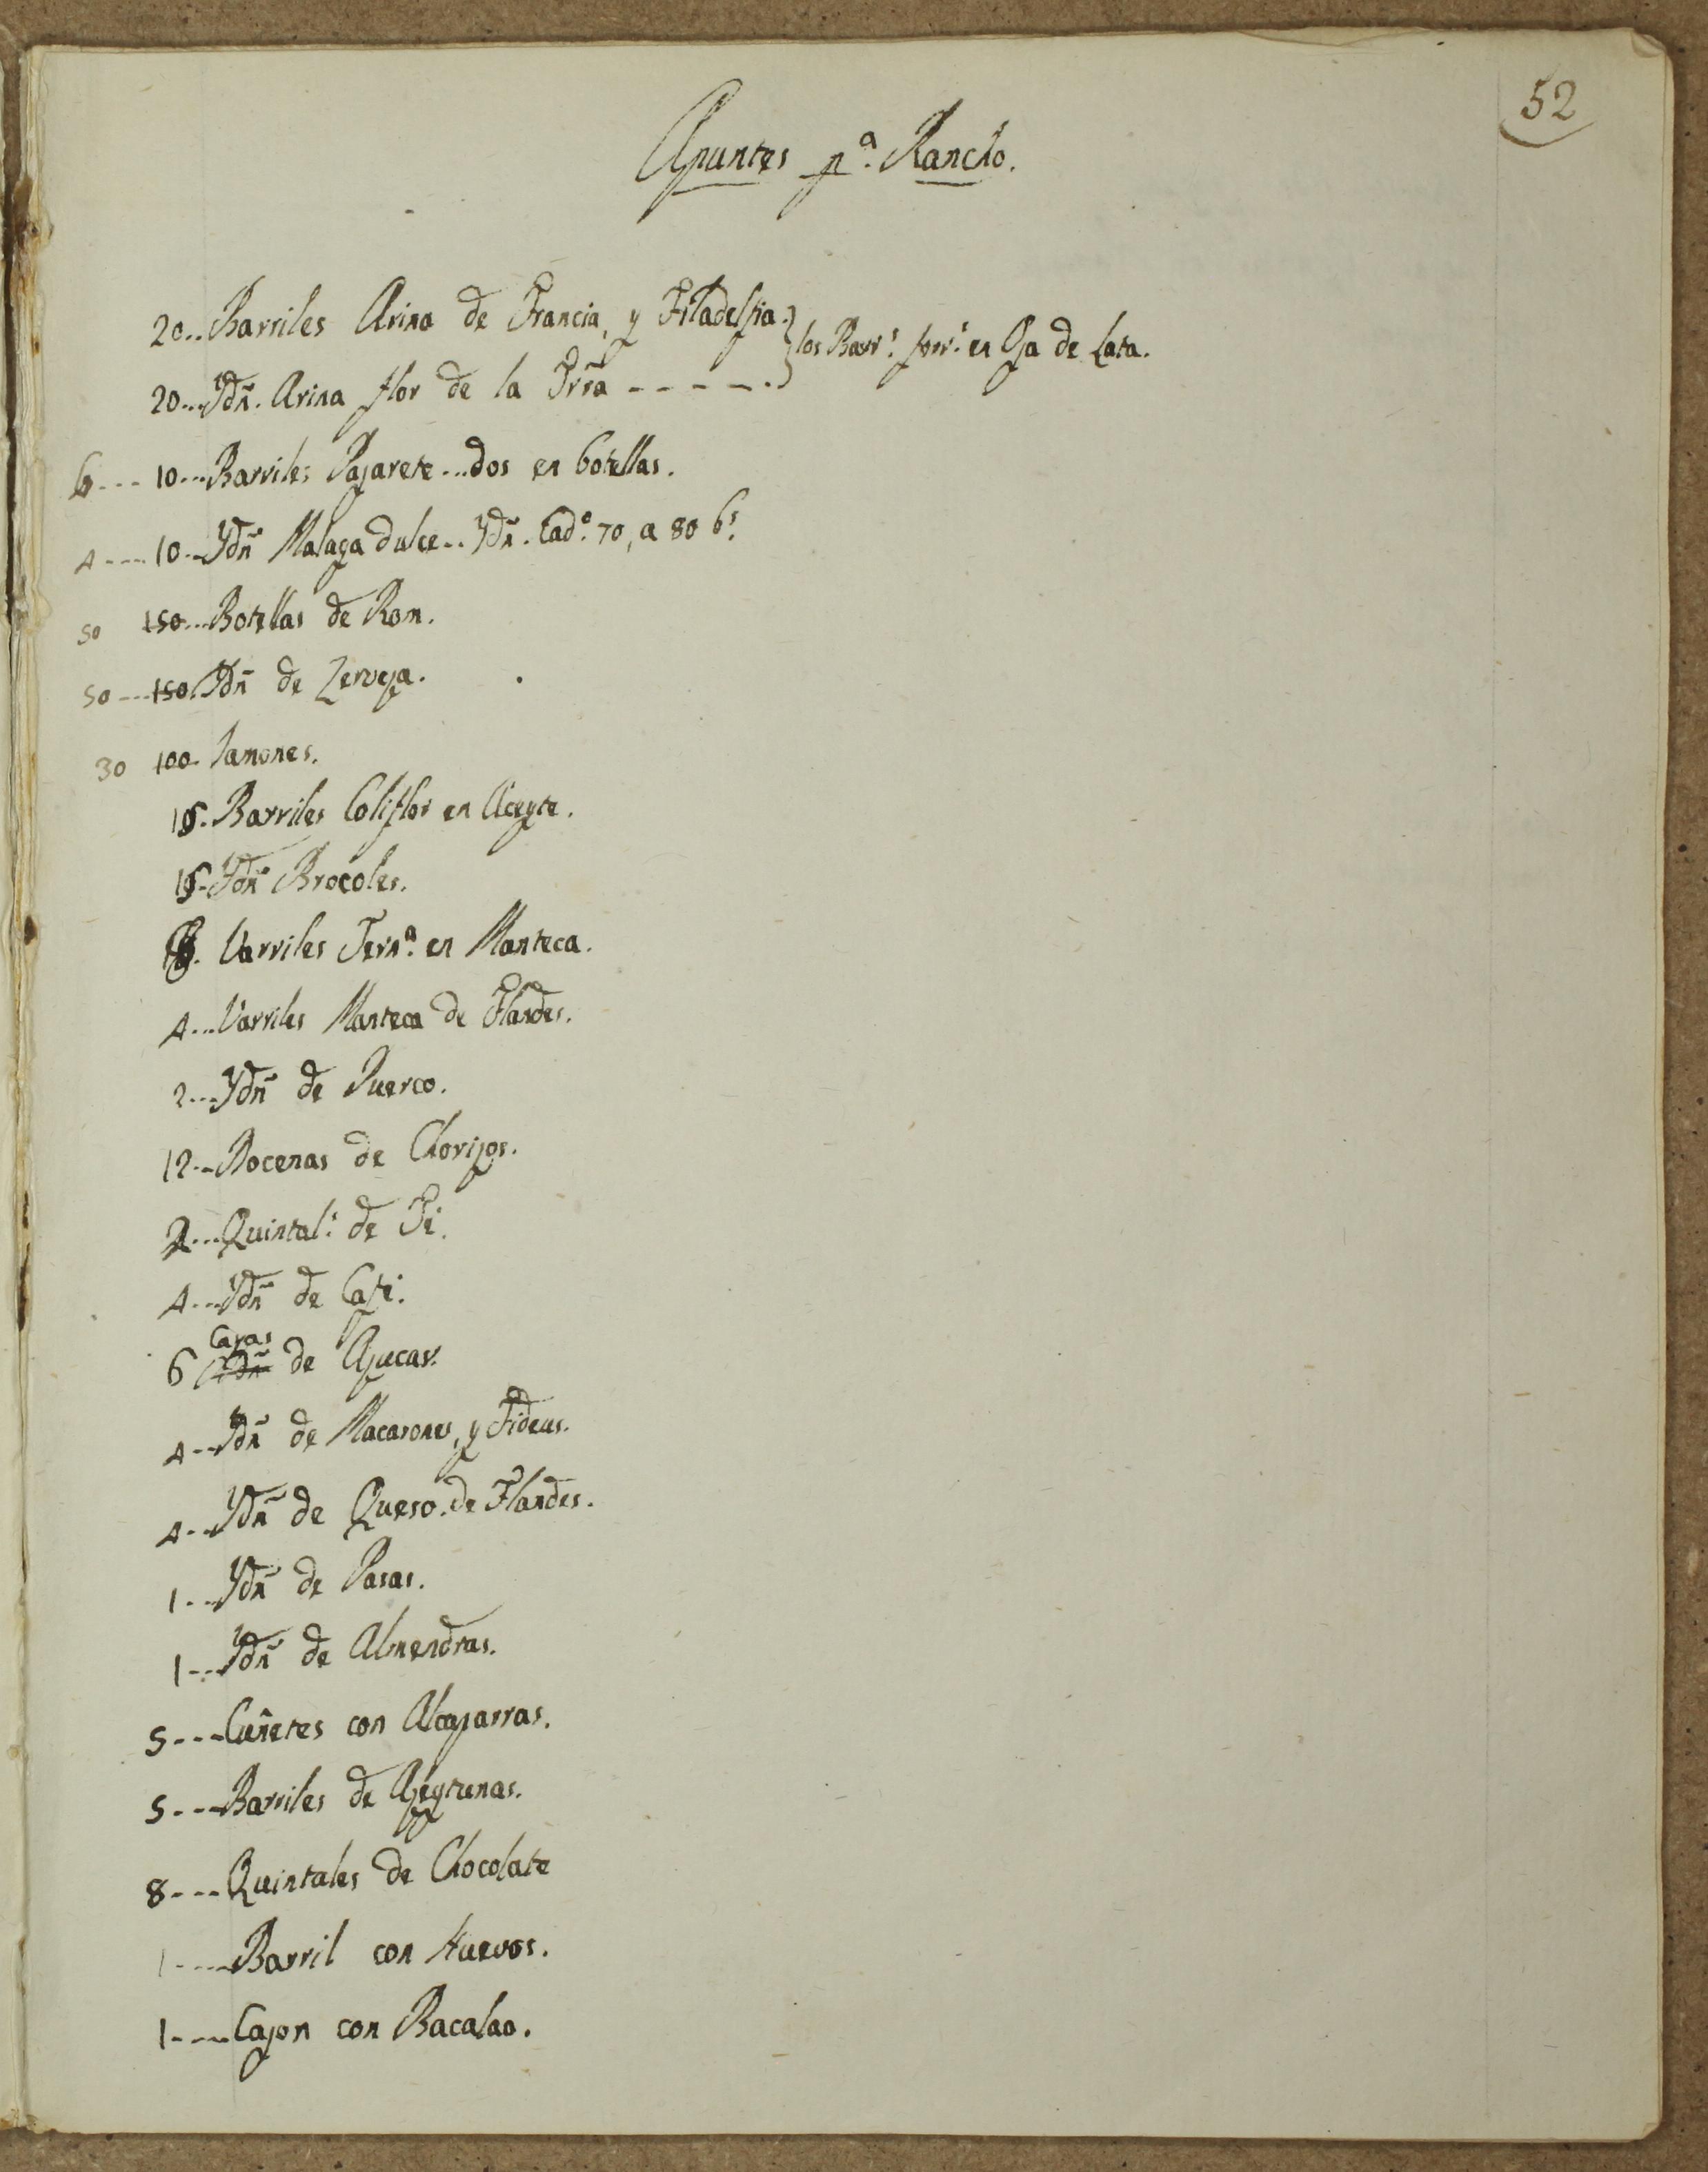 52
Apuntes pª. Rancho.
20.. Barriles Arina de Francia, y Filadelfia. } los Barr.s forr.s en Oja de Lata.
20... Ydñ. Arina flor de la Trrã - - - - .
6 --- 10... Barriles Pajarete... dos en botellas.
4 ---- 10... Ydñ Malaga dulce.. Ydñ. Cad.ª 70, a 80 b.s
50 150... Botellas de Rom.
50 --- 150. Ydñ de Zerveza.
30 100. Jamones.
Barriles Coliflor en Aceyte.
Ydñ Brocoles.
Varriles Tern.ª en Manteca.
4... Varriles Manteca de Flandes.
2... Ydñ de Puerco.
12.. Docenas de Chorizos.
2... Quintal.s de Té.
4... Ydñ de Café.
Cajas
6 Ydñ de Azucar.
4... Ydñ de Macarones, y Fideus.
4... Ydñ de Queso. de Flandes.
1... Ydñ de Pasas.
1... Ydñ de Almendras.
5 --- Cuñetes con Alcaparras.
5 --- Barriles de Azeytunas.
8 --- Quintales de Chocolate
1 ---- Barril con Huevos.
1 ---- Cajon con Bacalao.